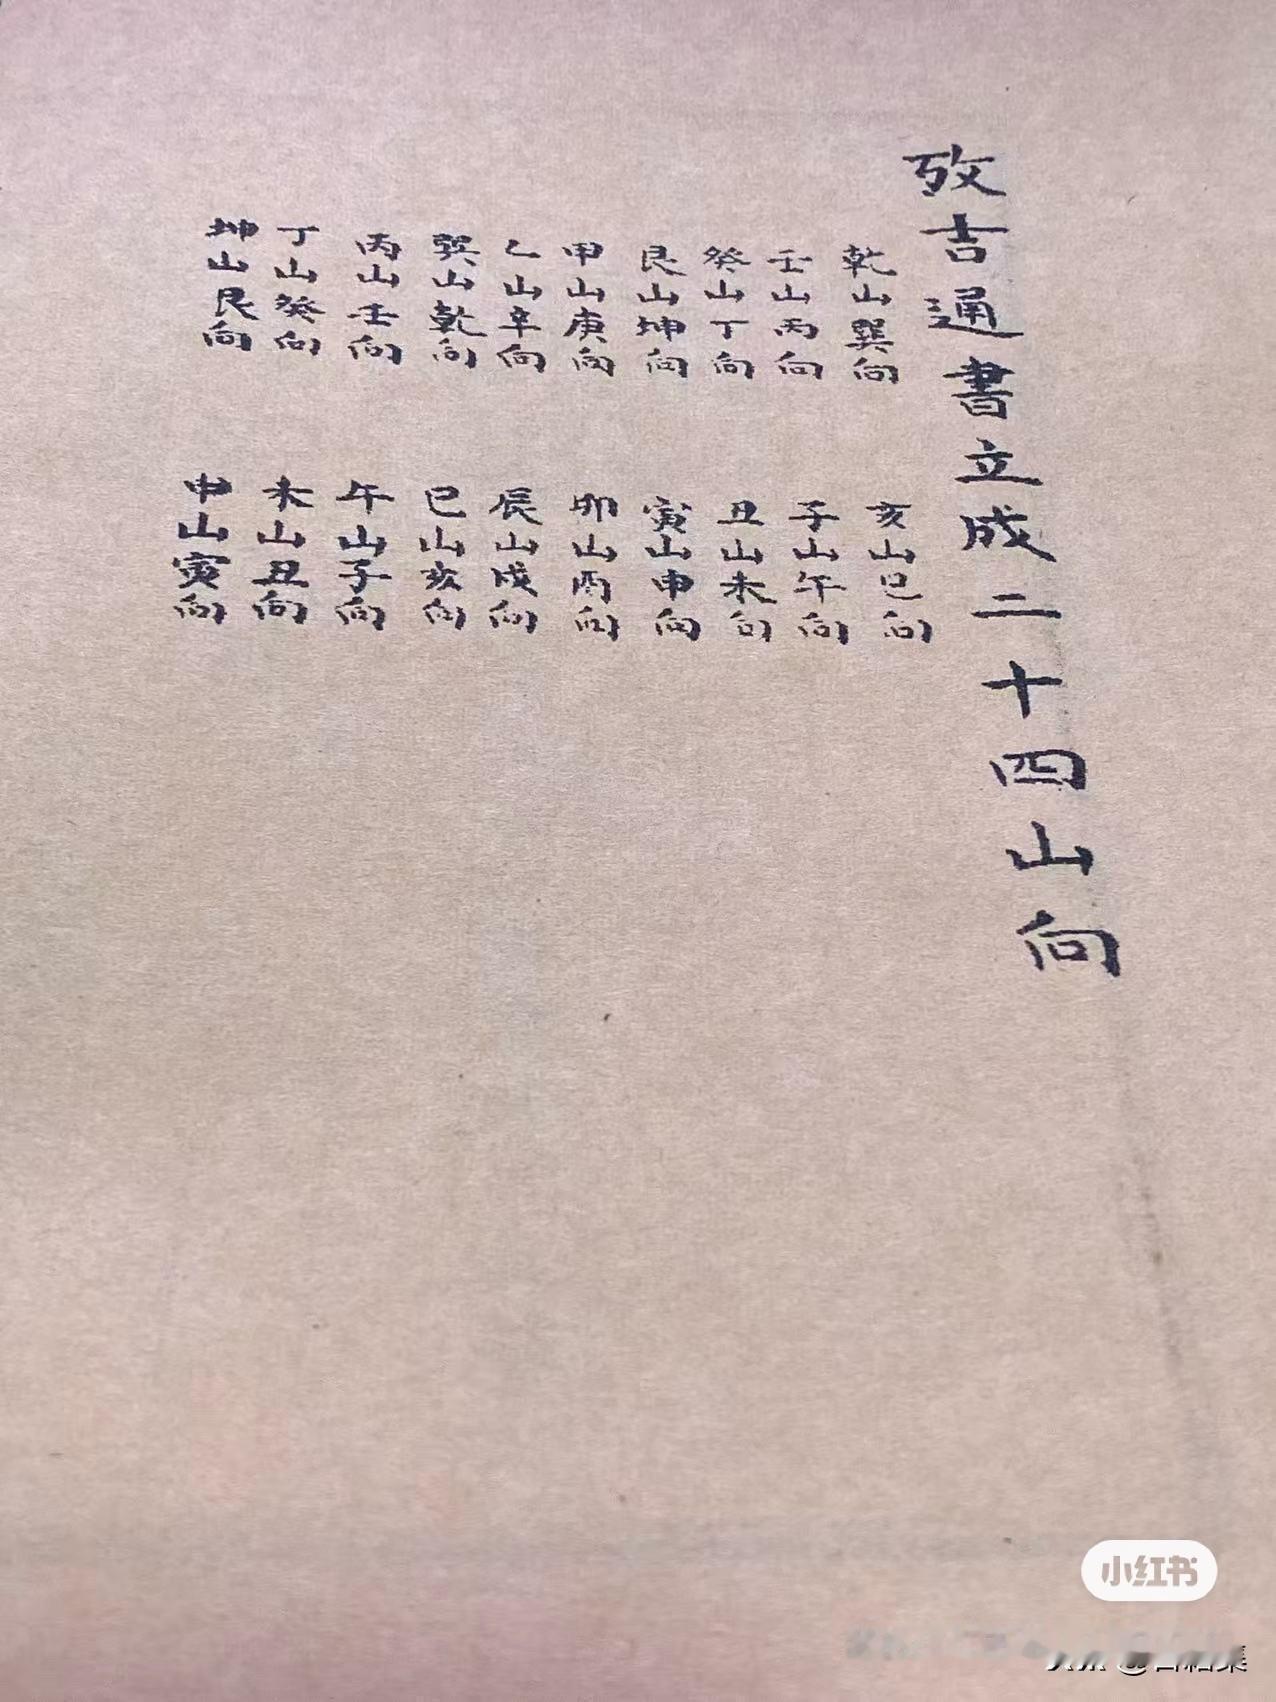 攷吉通書立成二十四山向
乾山巽向
壬山丙向
癸山丁向
艮山坤向
甲山庚向
乙山辛向
巽山乾向
丙山壬向
丁山癸向
坤山艮向
亥山巳向
子山午向
丑山未向
寅山申向
卯山酉向
辰山戌向
巳山亥向
午山子向
未山丑向
申山寅向
小红书